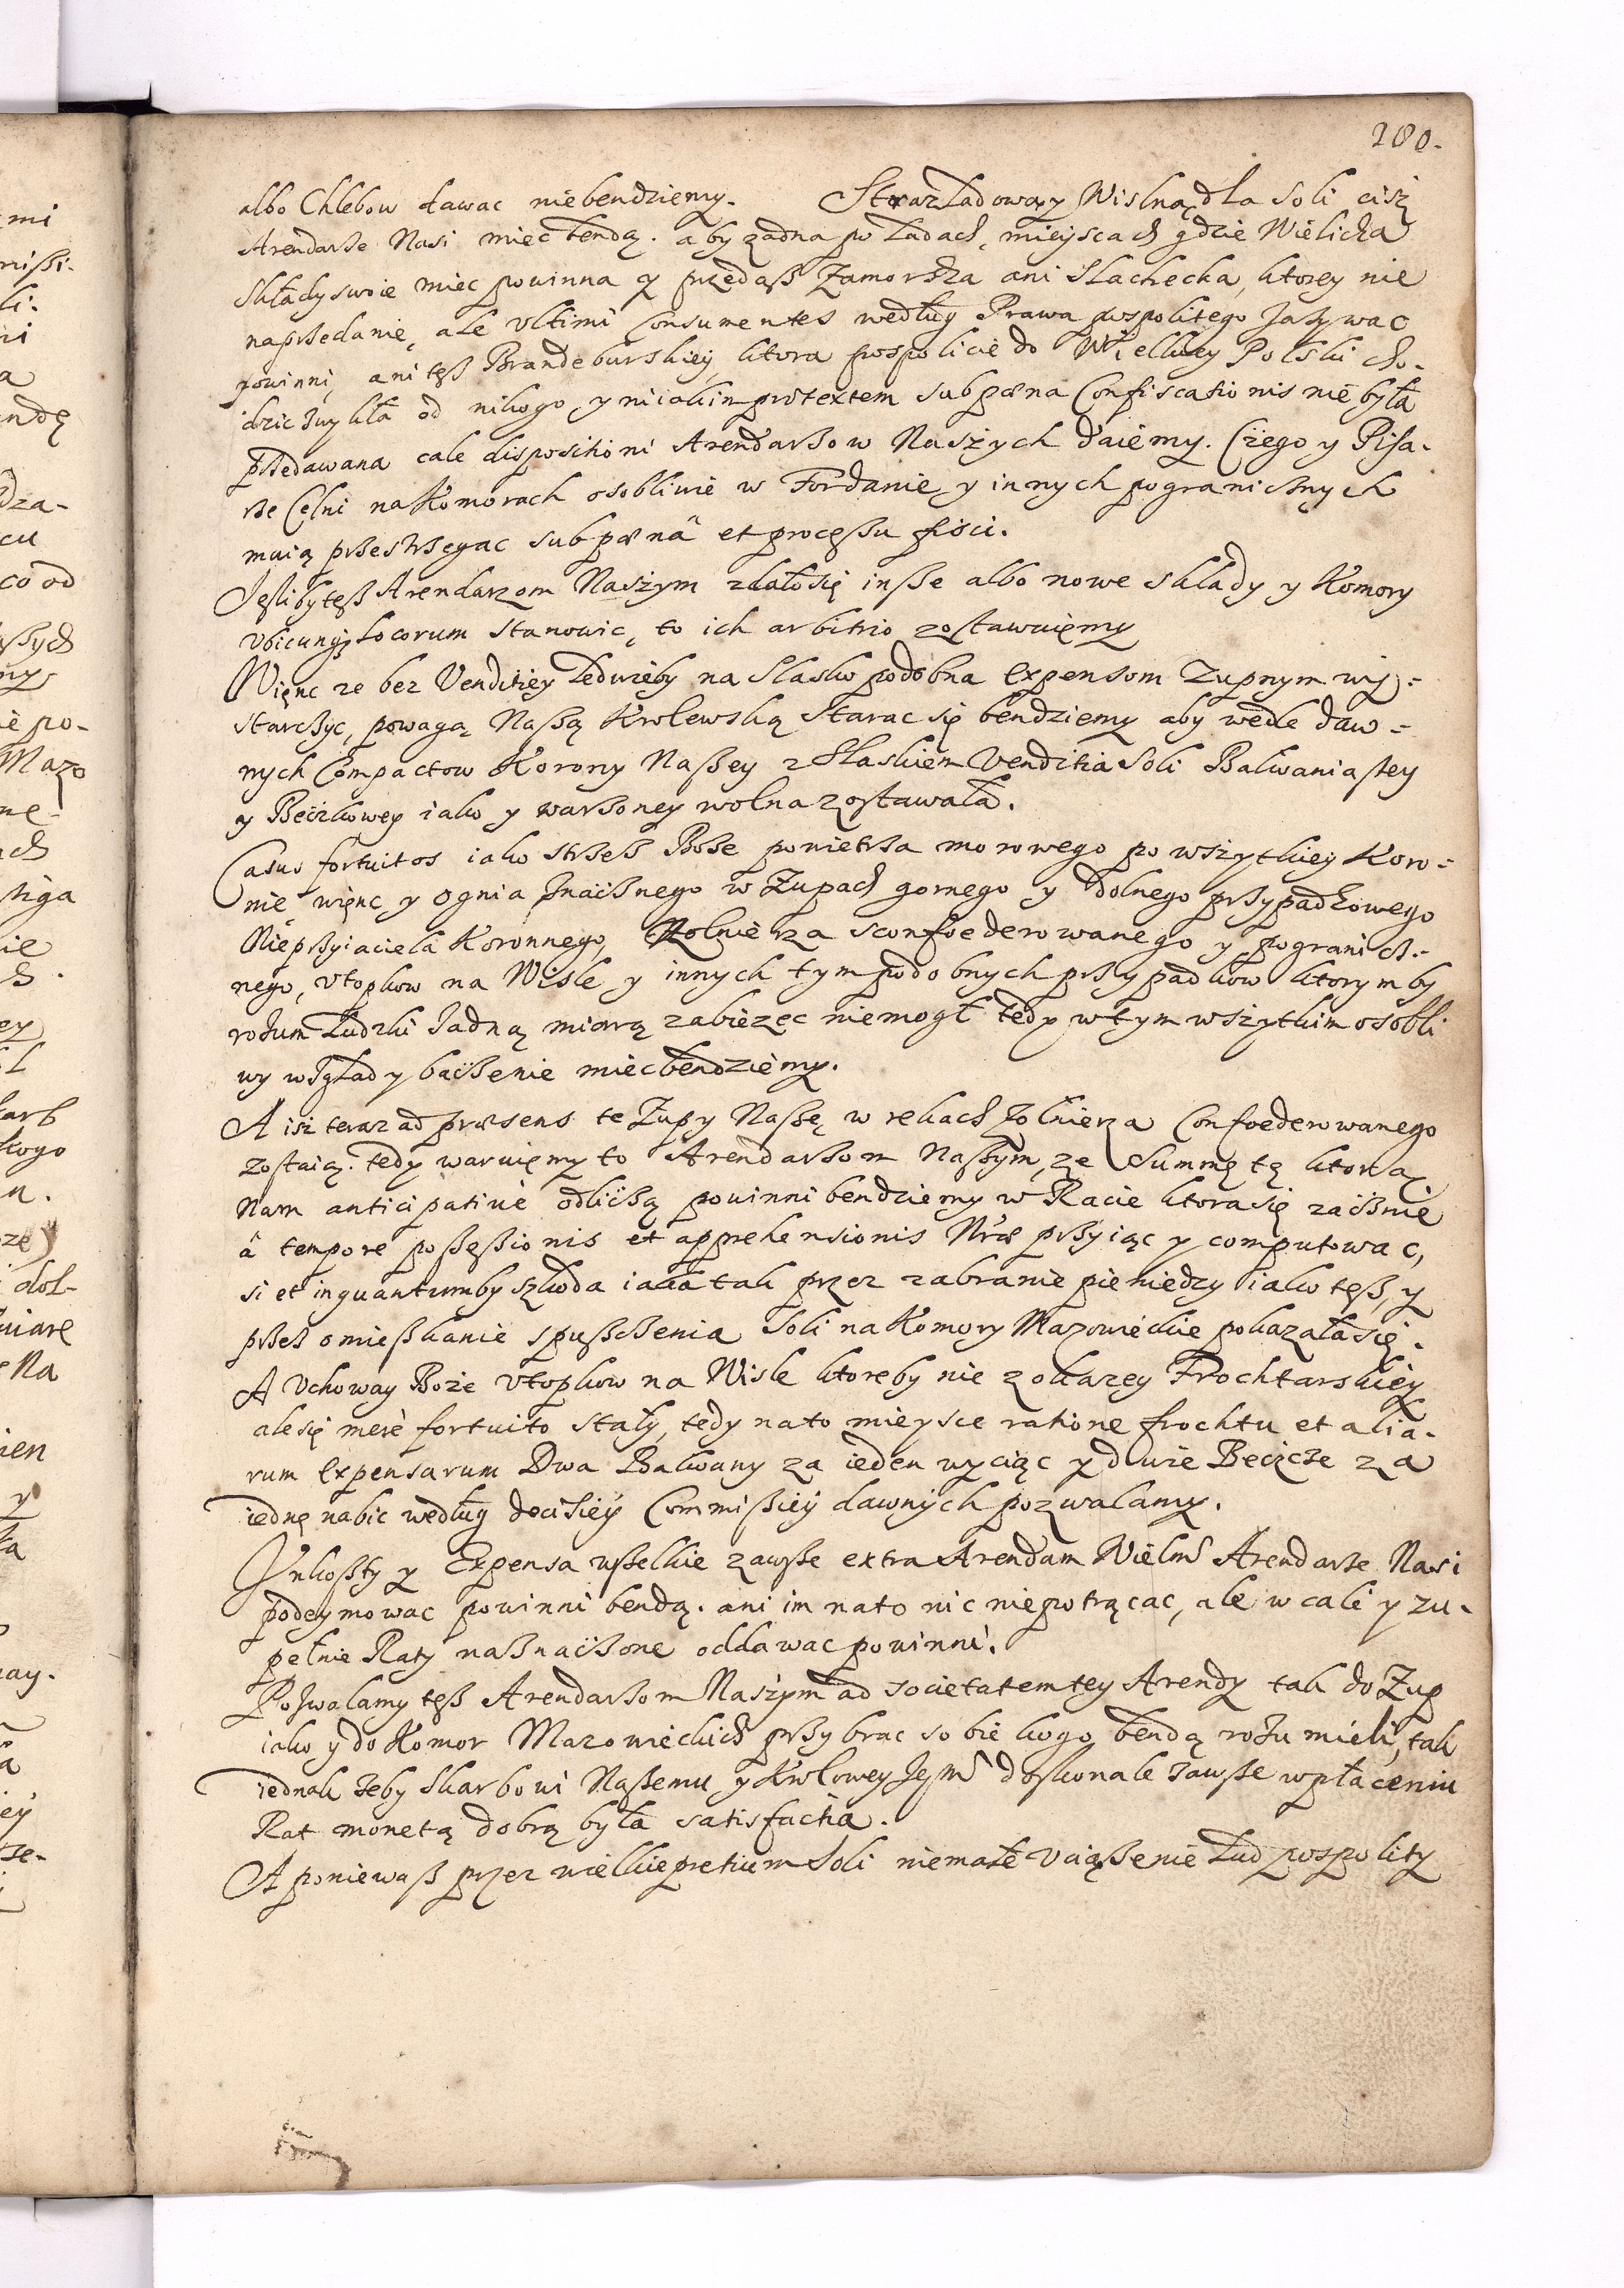 280.
albo Chlebow dawac niebendziemy. Straz Ladową y Wislną dla Soli cisz
Arendarße Nasi miec bendą. aby zadna po Ladach, mieyscach gdzie Wielicka
Składy swoie miec powinna y przedaß Zamorska ani Slachecka, ktorey nie
naprßedanie, ale Vltimi Consumentes według Prawa pospolitego Zazywac
powinni, ani teß Brandeburskiey, ktora pospolicie do Wielkiey Polski cho-
dzic Zwykła od nikogo y niiakim prætextem sub pœna Confiscationis nie była
pßedawana cale dispositioni Arendarßow Naszych daiemy. Czego y Pisa-
rße Celni na Komorach osobliwie w Fordanie y innych pogranicßnych
maią prßestrßegac sub pœnâ et processu fisci.
Jeßliby teß Arendarzom Naszym zdało się inße albo nowe składy y Komory
Vbicunqz Locorum stanowic, to ich arbitrio zostawuięmy
Więnc ze bez Venditiey Ledwieby na Slasko podobna Expensom Zupnym wy-
starcßyc, powagą Naßą Krolewską starac się bendziemy aby wedle daw-
nych Compactow Korony Naßey z Slaskiem Venditia Soli Bałwaniastey
y Beczkowey iako y warßoney wolna zostawała.
Casus fortuitos iako strßeß Boße powietrßa morowego po wszytkiey Koro-
nie, więnc y Ognia Znaczßnego w Zupach gornego y dolnego prßypadkowego
Nieprßyiaciela Koronnego, Zołnierza sconfoederowanego y pogranicz-
nego, Vtopkow na Wisle y innych tym podobnych prßypadkow ktorymby
rozum Ludzki Zadną miarą zabiezec niemogł tedy w tym wszytkim osobli
wy wzgląd y baczßenie miec bendziemy.
A isz teraz ad præsens te Zupy Naßę w rekach Zołnierza Confoederowanego
zostaią. tedy waruięmy to Arendarßom Naßym, ze Summę tę ktorą
Nam anticipative odliczßą powinni bendziemy w Racie ktora się zaczßnie
â tempore poßeßionis et apprehensionis Nræ prßyiąc y computowac,
si et inquantumby szkoda iaka tak przez zabranie pieniedzy iako teß, y
prßez omießkanie spußcßenia Soli na Komory Mazowieckie pokazała się.
A Vchoway Boże Vtopkow na Wisle ktoreby nie z okazey Frochtarskiey
ale się merè fortuito stały, tedy na to mieysce ratione frochtu et alia-
rum Expensarum Dwa Bałwany za ieden wyciąc y dwie Beczcße za
iednę nabic według decisiey Commißiey dawnych pozwalamy.
Vnkoßty y Expensa wßelkie zawße extra Arendam Wielm̃ Arendarße Nasi
podeymowac powinni bendą. ani im na to nic niepotrącac, ale w cale y zu-
pełnie Raty naßnaczßone oddawac powinni.
Pozwalamy teß Arendarßom Naszym ad societatem tey Arendy tak do Zup
iako y do Komor Mazowieckich prßybrac sobie kogo bendą rozumieli, tak
iednak zeby Skarbowi Naßemu y Krolowey Jeym̃ doskonale zawße w płaceniu
Rat monetą dobrą była satisfactia.
A poniewaß przez wielkie pretium Soli niemałe Vciąßenie Lud pospolity